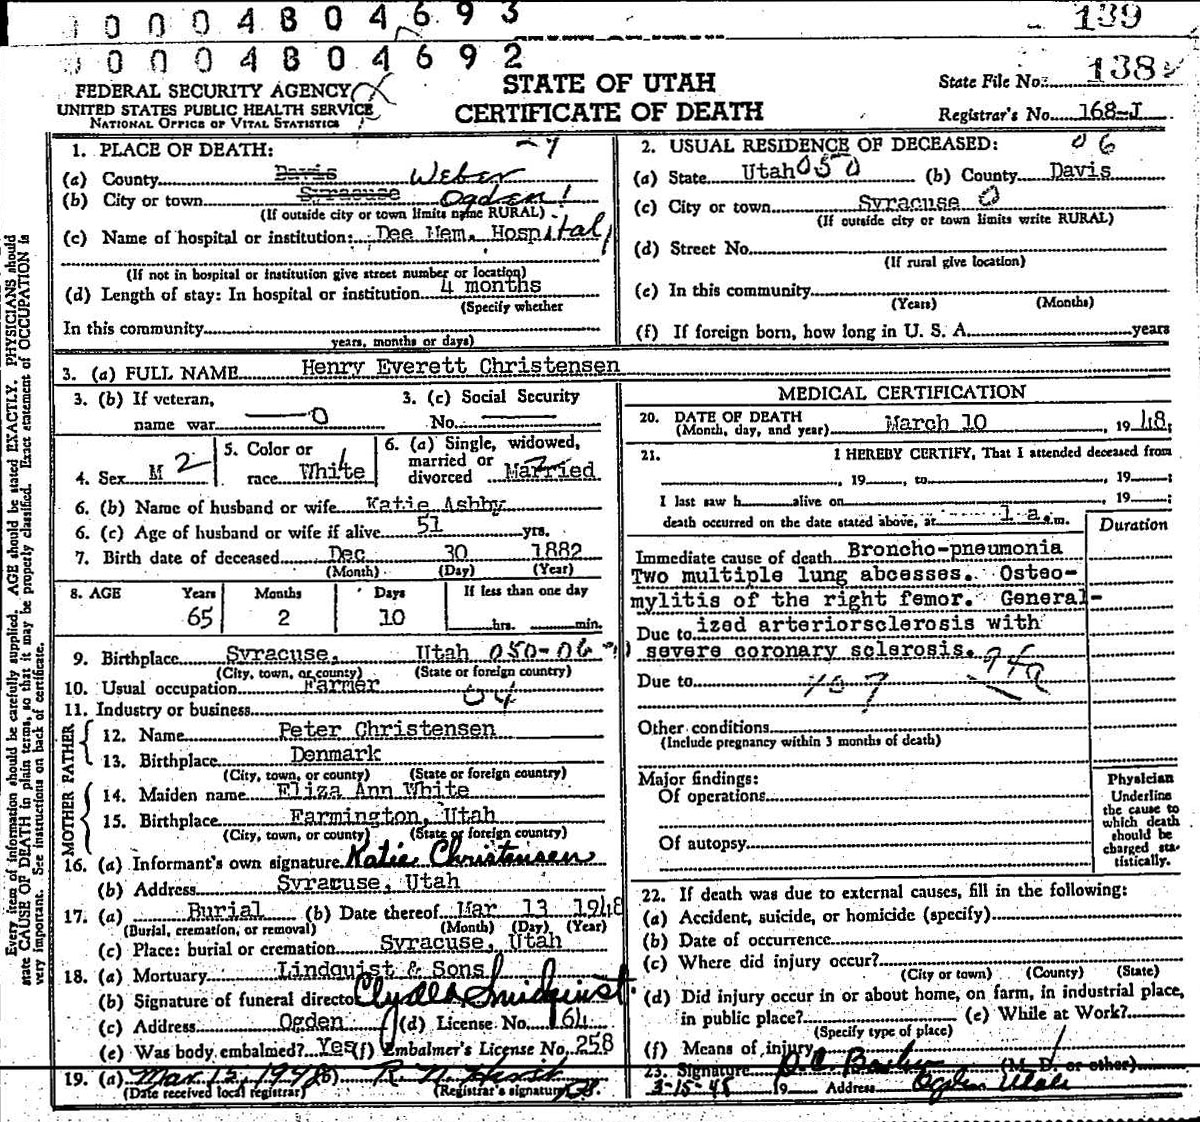 0 0 0 4 8 0 4 6 9 3
139
0 0 0 4 8 0 4 6 9 2
138
FEDERAL SECURITY AGENCY
UNITED STATES PUBLIC HEALTH SERVICE
NATIONAL OFFICE OF VITAL STATISTICS
STATE OF UTAH
CERTIFICATE OF DEATH
State File No.
Registrar's No. 168-J
1. PLACE OF DEATH:
(a) County Davis Weber
(b) City or town Syracuse Ogden
(If outside city or town limits name RURAL)
(c) Name of hospital or institution: Dee Mem. Hospital
(If not in hospital or institution give street number or location)
(d) Length of stay: In hospital or institution 4 months
(Specify whether
In this community
years, months or days)
2. USUAL RESIDENCE OF DECEASED: 06
(a) State Utah 050 (b) County Davis
(c) City or town Syracuse 0
(If outside city or town limits write RURAL)
(d) Street No.
(If rural give location)
(e) In this community
(Years) (Months)
(f) If foreign born, how long in U. S. A. years
3. (a) FULL NAME Henry Everett Christensen
3. (b) If veteran,
name war 0
3. (c) Social Security
No.
4. Sex M 2
5. Color or
race White 1
6. (a) Single, widowed,
married or
divorced Married 2
6. (b) Name of husband or wife Katie Ashby
6. (c) Age of husband or wife if alive 51 yrs.
7. Birth date of deceased Dec 30 1882
(Month) (Day) (Year)
8. AGE Years Months Days If less than one day
65 2 10 hrs. min.
9. Birthplace Syracuse, Utah 050-06
(City, town, or county) (State or foreign country)
10. Usual occupation Farmer 04
11. Industry or business
FATHER
12. Name Peter Christensen
13. Birthplace Denmark
(City, town, or county) (State or foreign country)
MOTHER
14. Maiden name Eliza Ann White
15. Birthplace Farmington, Utah
(City, town, or county) (State or foreign country)
16. (a) Informant's own signature Katie Christensen
(b) Address Syracuse, Utah
17. (a) Burial (b) Date thereof Mar 13 1948
(Burial, cremation, or removal) (Month) (Day) (Year)
(c) Place: burial or cremation Syracuse, Utah
18. (a) Mortuary Lindquist & Sons
(b) Signature of funeral director
(c) Address Ogden (d) License No. 164
(e) Was body embalmed? Yes (f) Embalmer's License No. 258
19. (a) Mar 15, 1948 (b)
(Date received local registrar) (Registrar's signature)
MEDICAL CERTIFICATION
20. DATE OF DEATH
(Month, day, and year) March 10, 1948.
21. I HEREBY CERTIFY, That I attended deceased from
, 19 , to , 19 ;
I last saw h alive on , 19 ;
death occurred on the date stated above, at 1 a.m.
Duration
Immediate cause of death Broncho-pneumonia
Two multiple lung abcesses. Osteo-
mylitis of the right femor. General-
Due to ized arteriorsclerosis with
severe coronary sclerosis.
Due to 107
Other conditions
(Include pregnancy within 3 months of death)
Major findings:
Of operations
Of autopsy
Physician
Underline
the cause to
which death
should be
charged sta-
tistically.
22. If death was due to external causes, fill in the following:
(a) Accident, suicide, or homicide (specify)
(b) Date of occurrence
(c) Where did injury occur?
(City or town) (County) (State)
(d) Did injury occur in or about home, on farm, in industrial place,
in public place? (e) While at Work?
(Specify type of place)
(f) Means of injury
23. Signature (M. D. or other)
3-15-48 19 Address Ogden Utah
Every item of information should be carefully supplied. AGE should be stated EXACTLY. PHYSICIANS should
state CAUSE OF DEATH in plain terms, so that it may be properly classified. Exact statement of OCCUPATION is
very important. See instructions on back of certificate.